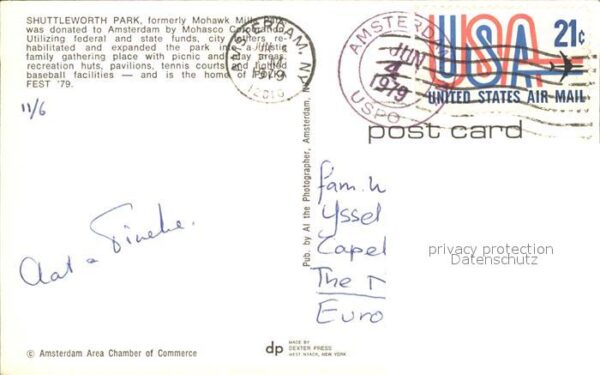 SHUTTLEWORTH PARK, formerly Mohawk Mills Park,
was donated to Amsterdam by Mohasco Corporation.
Utilizing federal and state funds, city fathers re-
habilitated and expanded the park into a
family gathering place with picnic and play areas,
recreation huts, pavilions, tennis courts and lighted
baseball facilities — and is the home of
FEST '79.
11/6
Aat
Fam.
Yssel
Capel
The
Euro
© Amsterdam Area Chamber of Commerce
Pub. by Al the Photographer, Amsterdam, N.Y.
dp
MADE BY
DEXTER PRESS
WEST NYACK, NEW YORK
AMSTERDAM, N.Y.
1979
12010
AMSTERDAM
JUN
4
1979
USPO
USA 21¢
UNITED STATES AIR MAIL
post card
privacy protection
Datenschutz